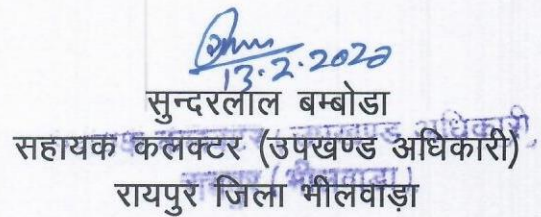 13.2.2020
सुन्दरलाल बम्बोडा
सहायक कलक्टर (उपखण्ड अधिकारी)
रायपुर जिला भीलवाड़ा